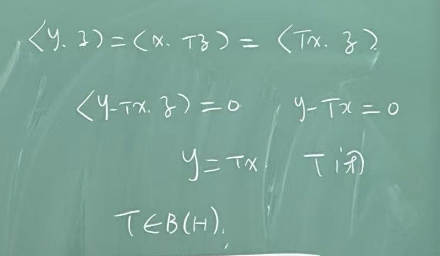 <y.z>=<x.Tz>=<Tx.z>
<y-Tx.z>=0 y-Tx=0
y=Tx. T 闭
T∈B(H).